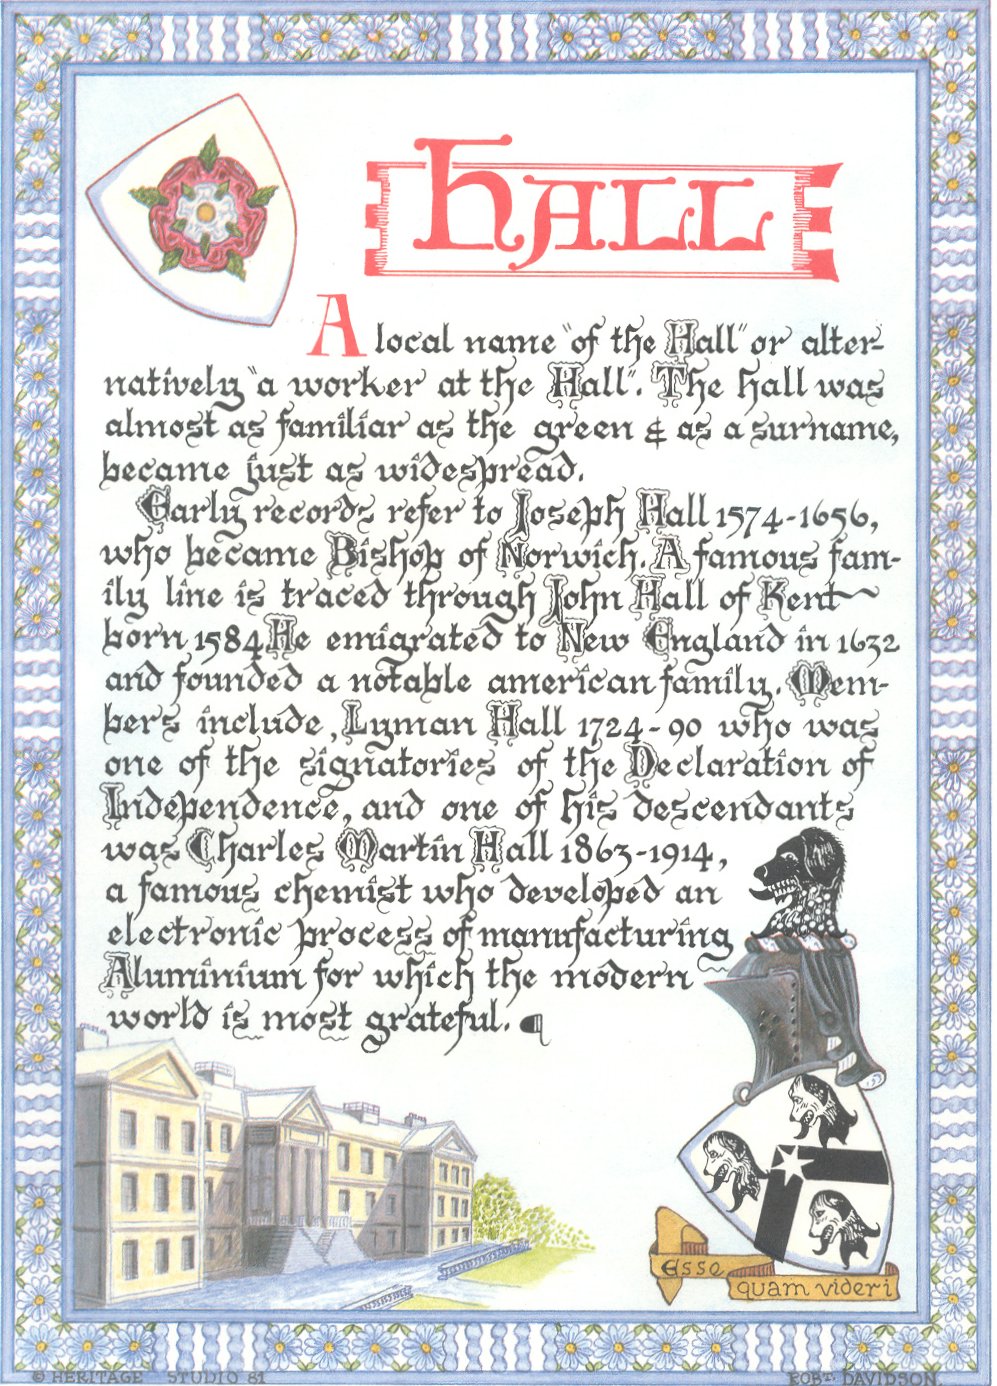 Hall
A local name "of the Hall" or alter-
natively "a worker at the Hall". The hall was
almost as familiar as the green & as a surname,
became just as widespread.
Early records refer to Joseph Hall 1574-1656,
who became Bishop of Norwich. A famous fam-
ily line is traced through John Hall of Kent~
born 1584. He emigrated to New England in 1632
and founded a notable american family. Mem-
bers include, Lyman Hall 1724-90 who was
one of the signatories of the Declaration of
Independence, and one of his descendants
was Charles Martin Hall 1863-1914,
a famous chemist who developed an
electronic process of manufacturing
Aluminium for which the modern
world is most grateful.
Esse
quam videri
© HERITAGE STUDIO 81
ROBT. DAVIDSON.